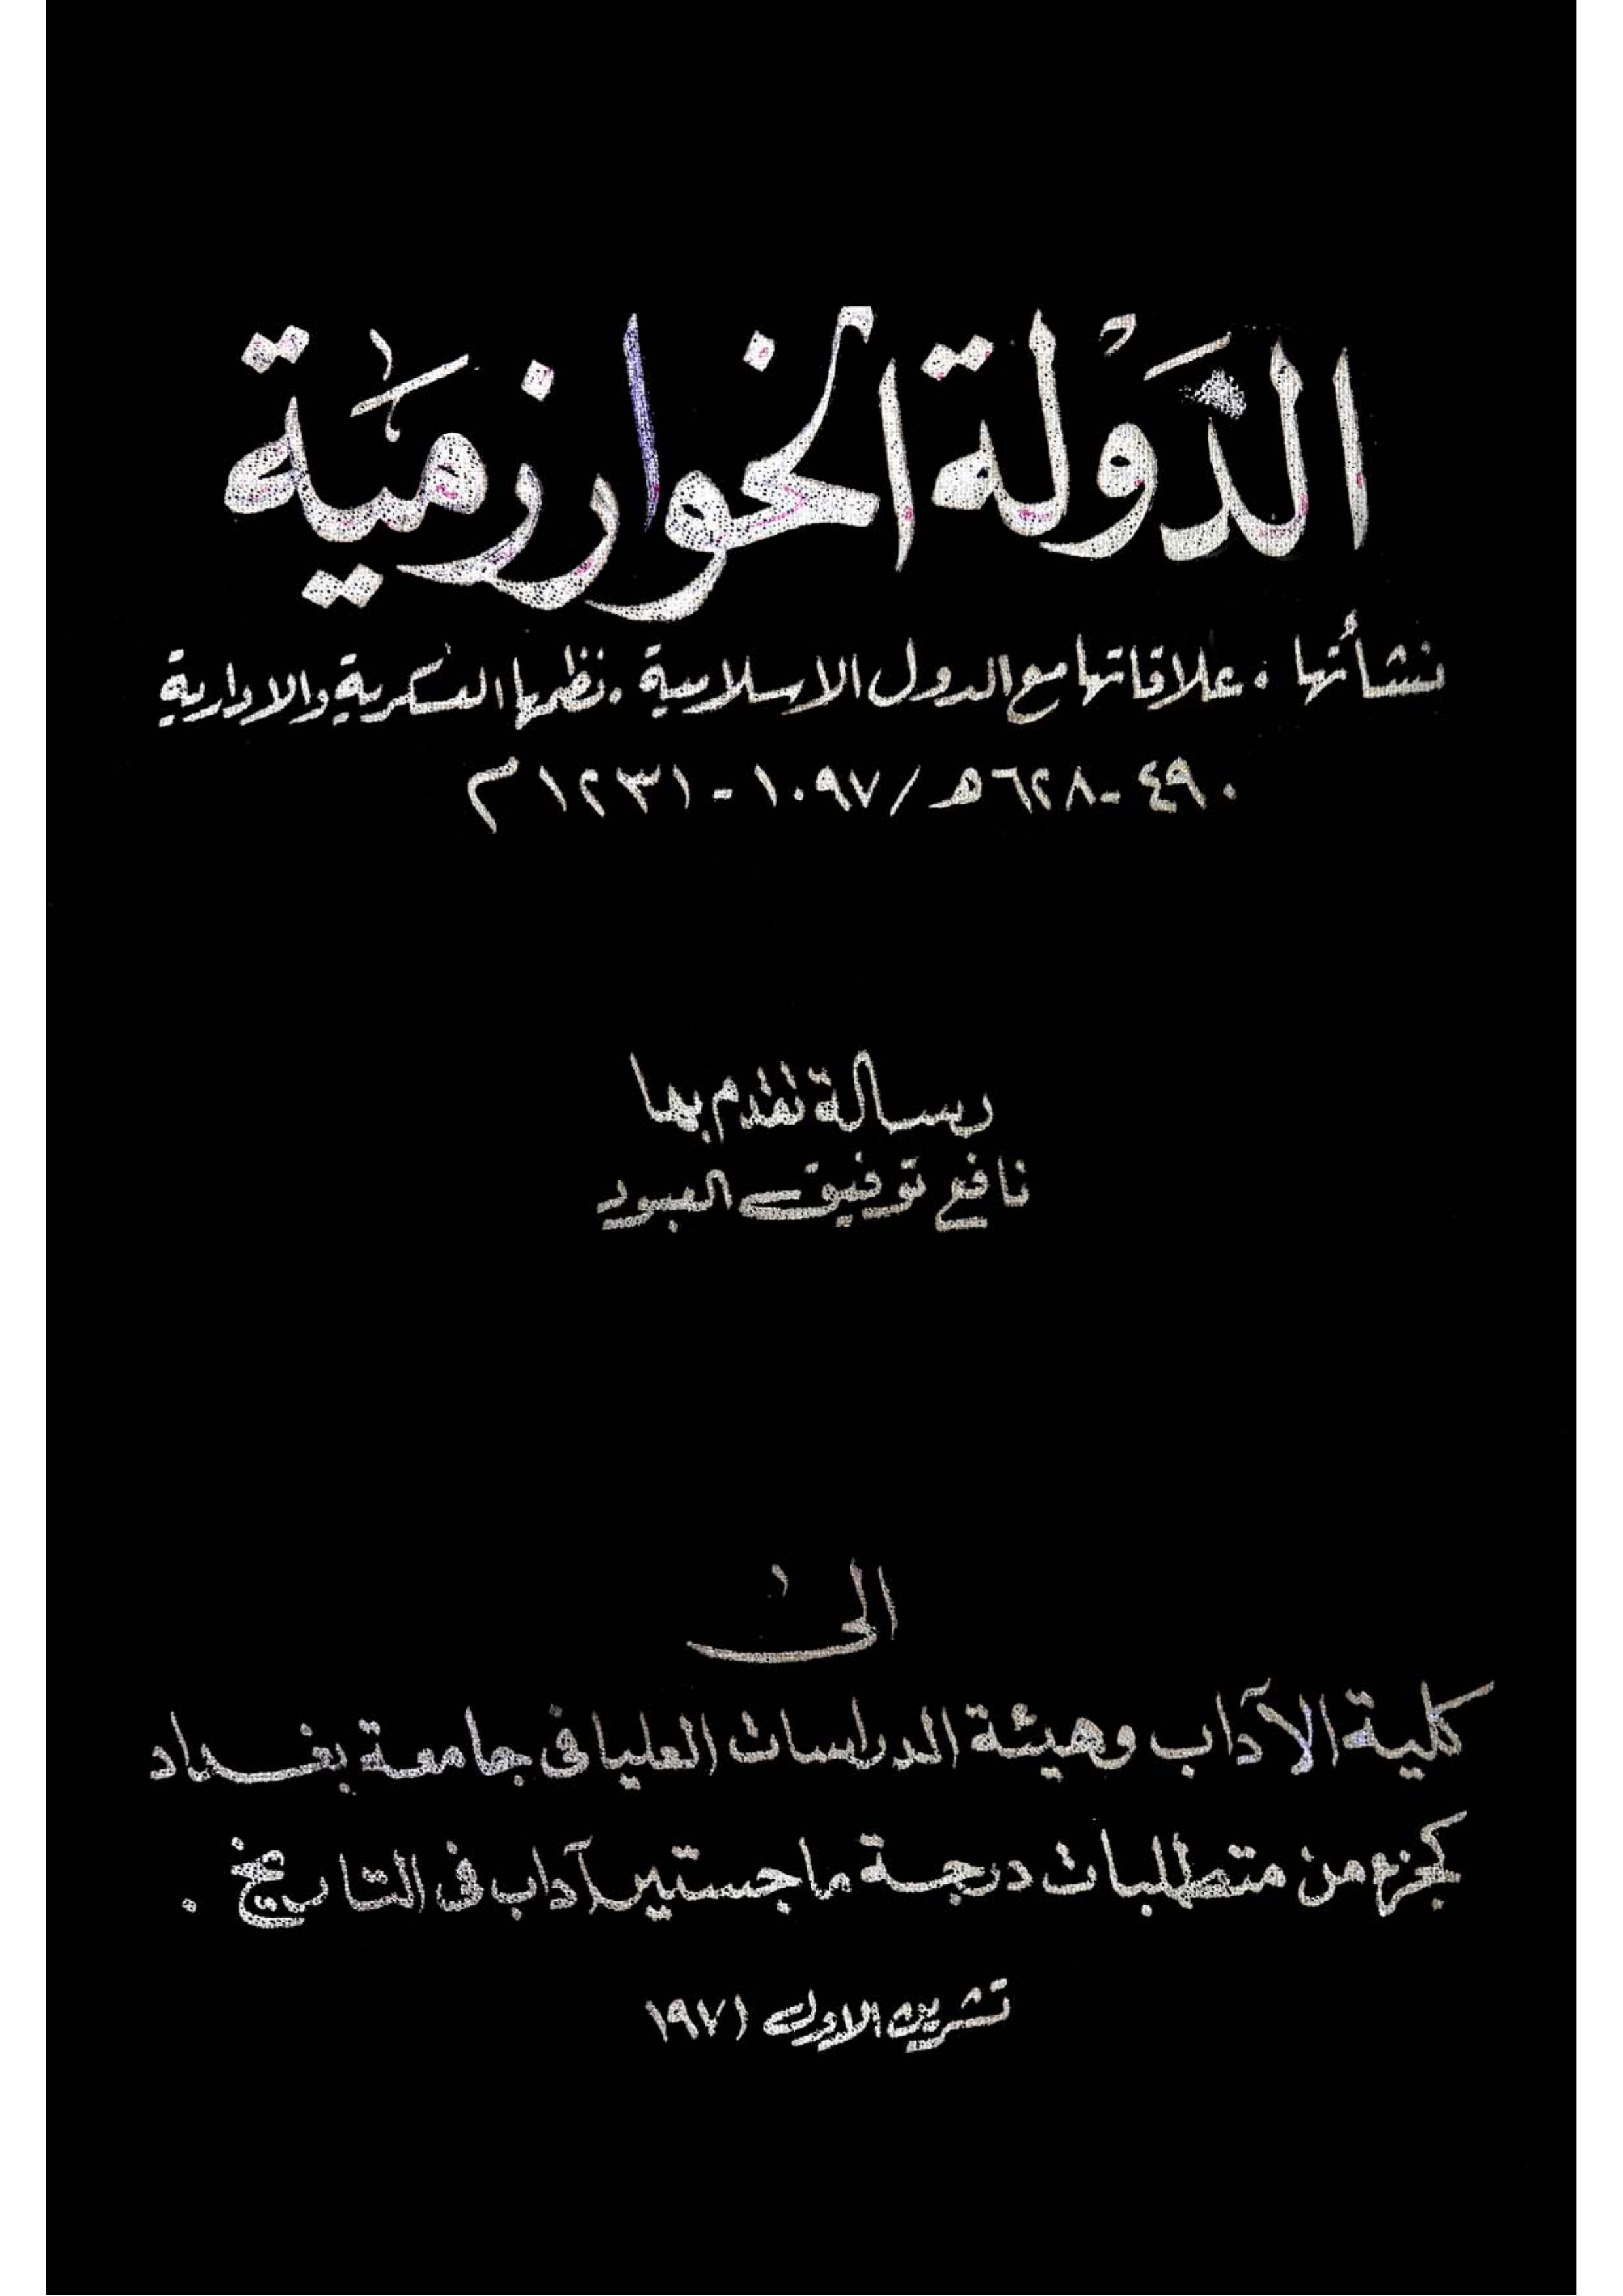 الدَّوْلة الخوارزميَّة
نشأتها . علاقاتها مع الدول الاسلامية . نظمها العسكرية والادارية
٤٩٠-٦٢٨هـ/١٠٩٧-١٢٣١م
رسالة تقدم بها
نافع توفيق العبود
الى
كلية الآداب وهيئة الدراسات العليا في جامعة بغداد
كجزء من متطلبات درجة ماجستير آداب في التاريخ .
تشرين الاول ١٩٧١